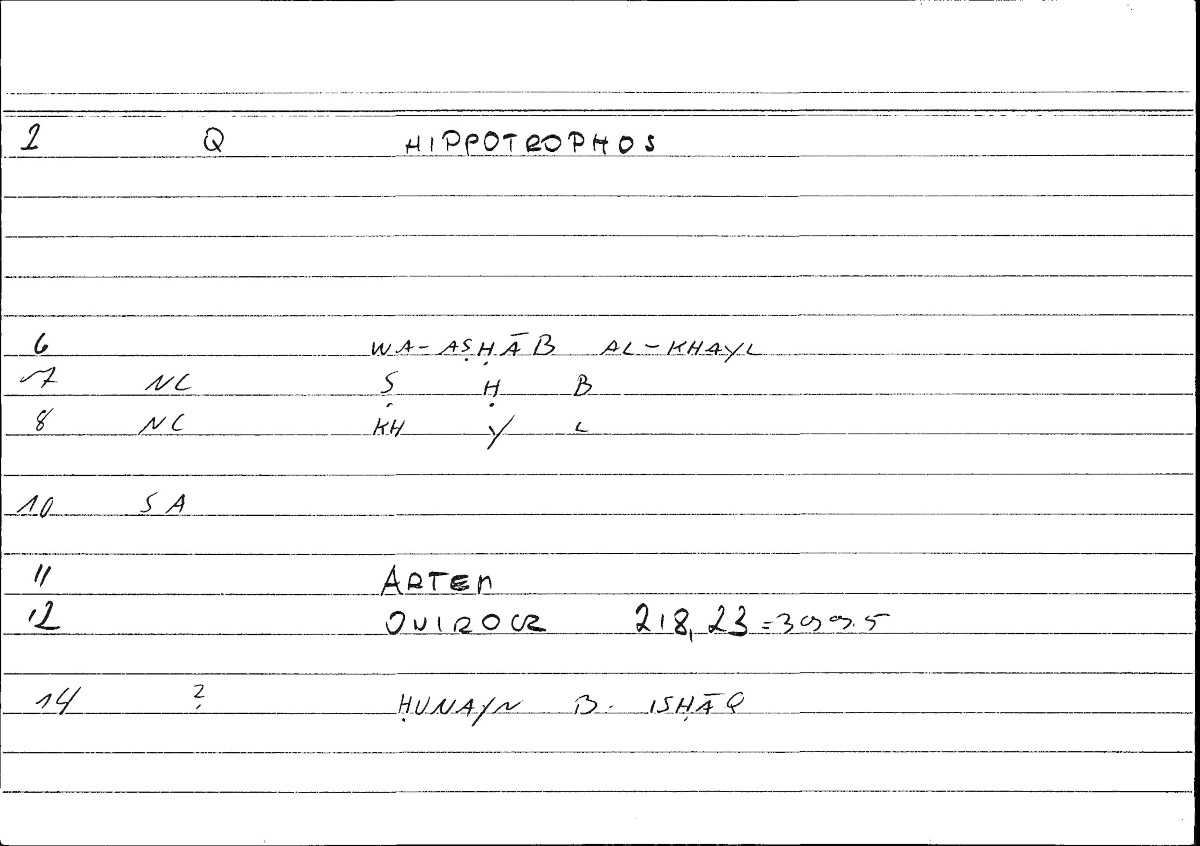 2 Q HIPPOTROPHOS
6 WA-AṢḤĀB AL-KHAYL
7 NC Ṣ Ḥ B
8 NC KH Y L
10 SA
11 ARTEM
12 ONIROCR 218,23=399.5
14 ? ḤUNAYN B. ISḤĀQ